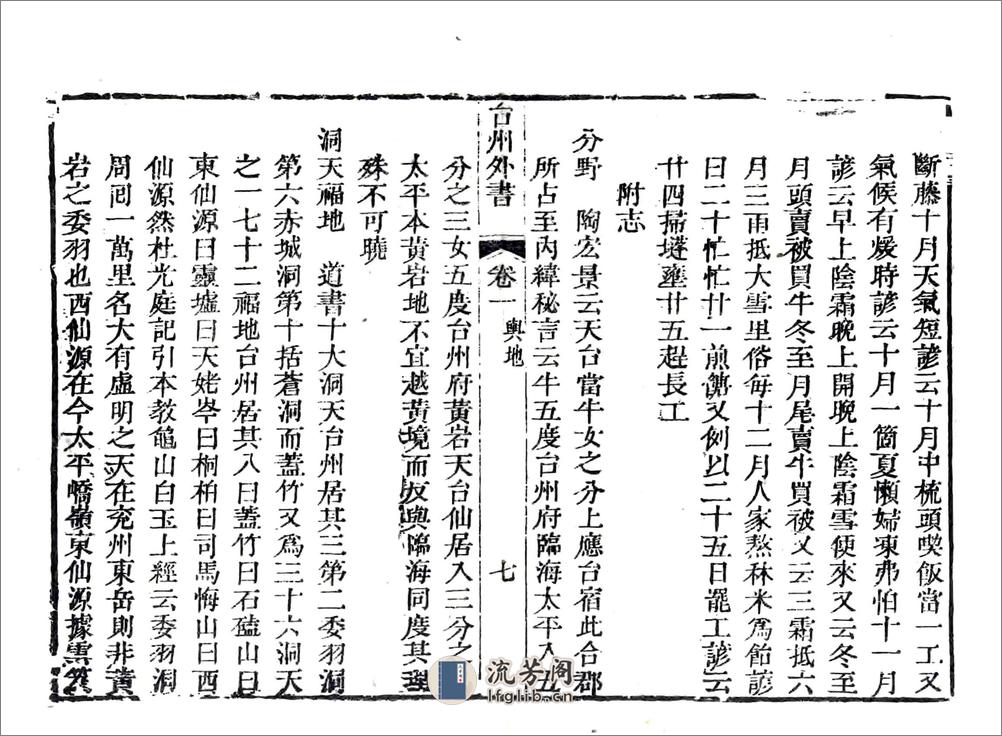 斷藤十月天氣短諺云十月中梳頭喫飯當一工又
氣候有煖時諺云十月一箇夏懶婦凍弗怕十一月
諺云早上陰霜晚上開晚上陰霜雪便來又云冬至
月頭賣被買牛冬至月尾賣牛買被又云三霜抵六
月三雨抵大雪里俗每十二月人家熬秫米爲飴諺
曰二十忙忙廿一煎餹又例以二十五日罷工諺云
廿四掃塳壅廿五趕長工
附志
分野 陶宏景云天台當牛女之分上應台宿此合郡
所占至內緯秘言云牛五度台州府臨海太平入五
分之三女五度台州府黃岩天台仙居入三分之
太平本黃岩地不宜越黃境而反與臨海同度其理
殊不可曉
台州外書 卷一 輿地 七
洞天福地 道書十大洞天台州居其三第二委羽洞
第六赤城洞第十括蒼洞而蓋竹又爲三十六洞天
之一七十二福地台州居其八曰蓋竹曰石磕山曰
東仙源曰靈墟曰天姥岑曰桐柏曰司馬悔山曰西
仙源然杜光庭記引本教龜山白玉上經云委羽洞
周囘一萬里名大有虛明之天在兖州東岳則非黃
岩之委羽也西仙源在今太平嶠嶺東仙源據雲笈
流芳阁
lfglib.cn